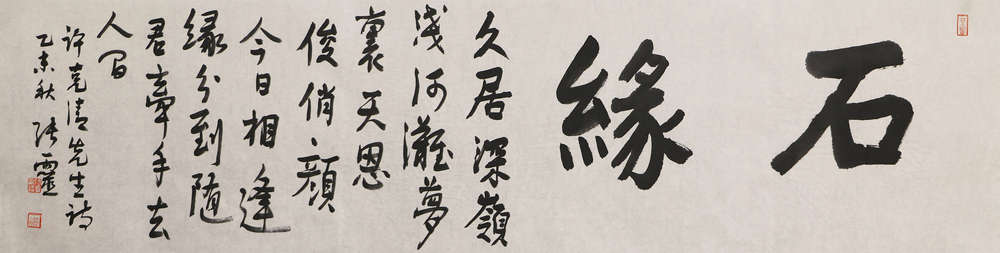 石緣
久居深嶺
淺河灘夢
裏天恩
俊俏顏
今日相逢
緣分到隨
君牽手去
人間
許克清先生詩
乙未秋張靈